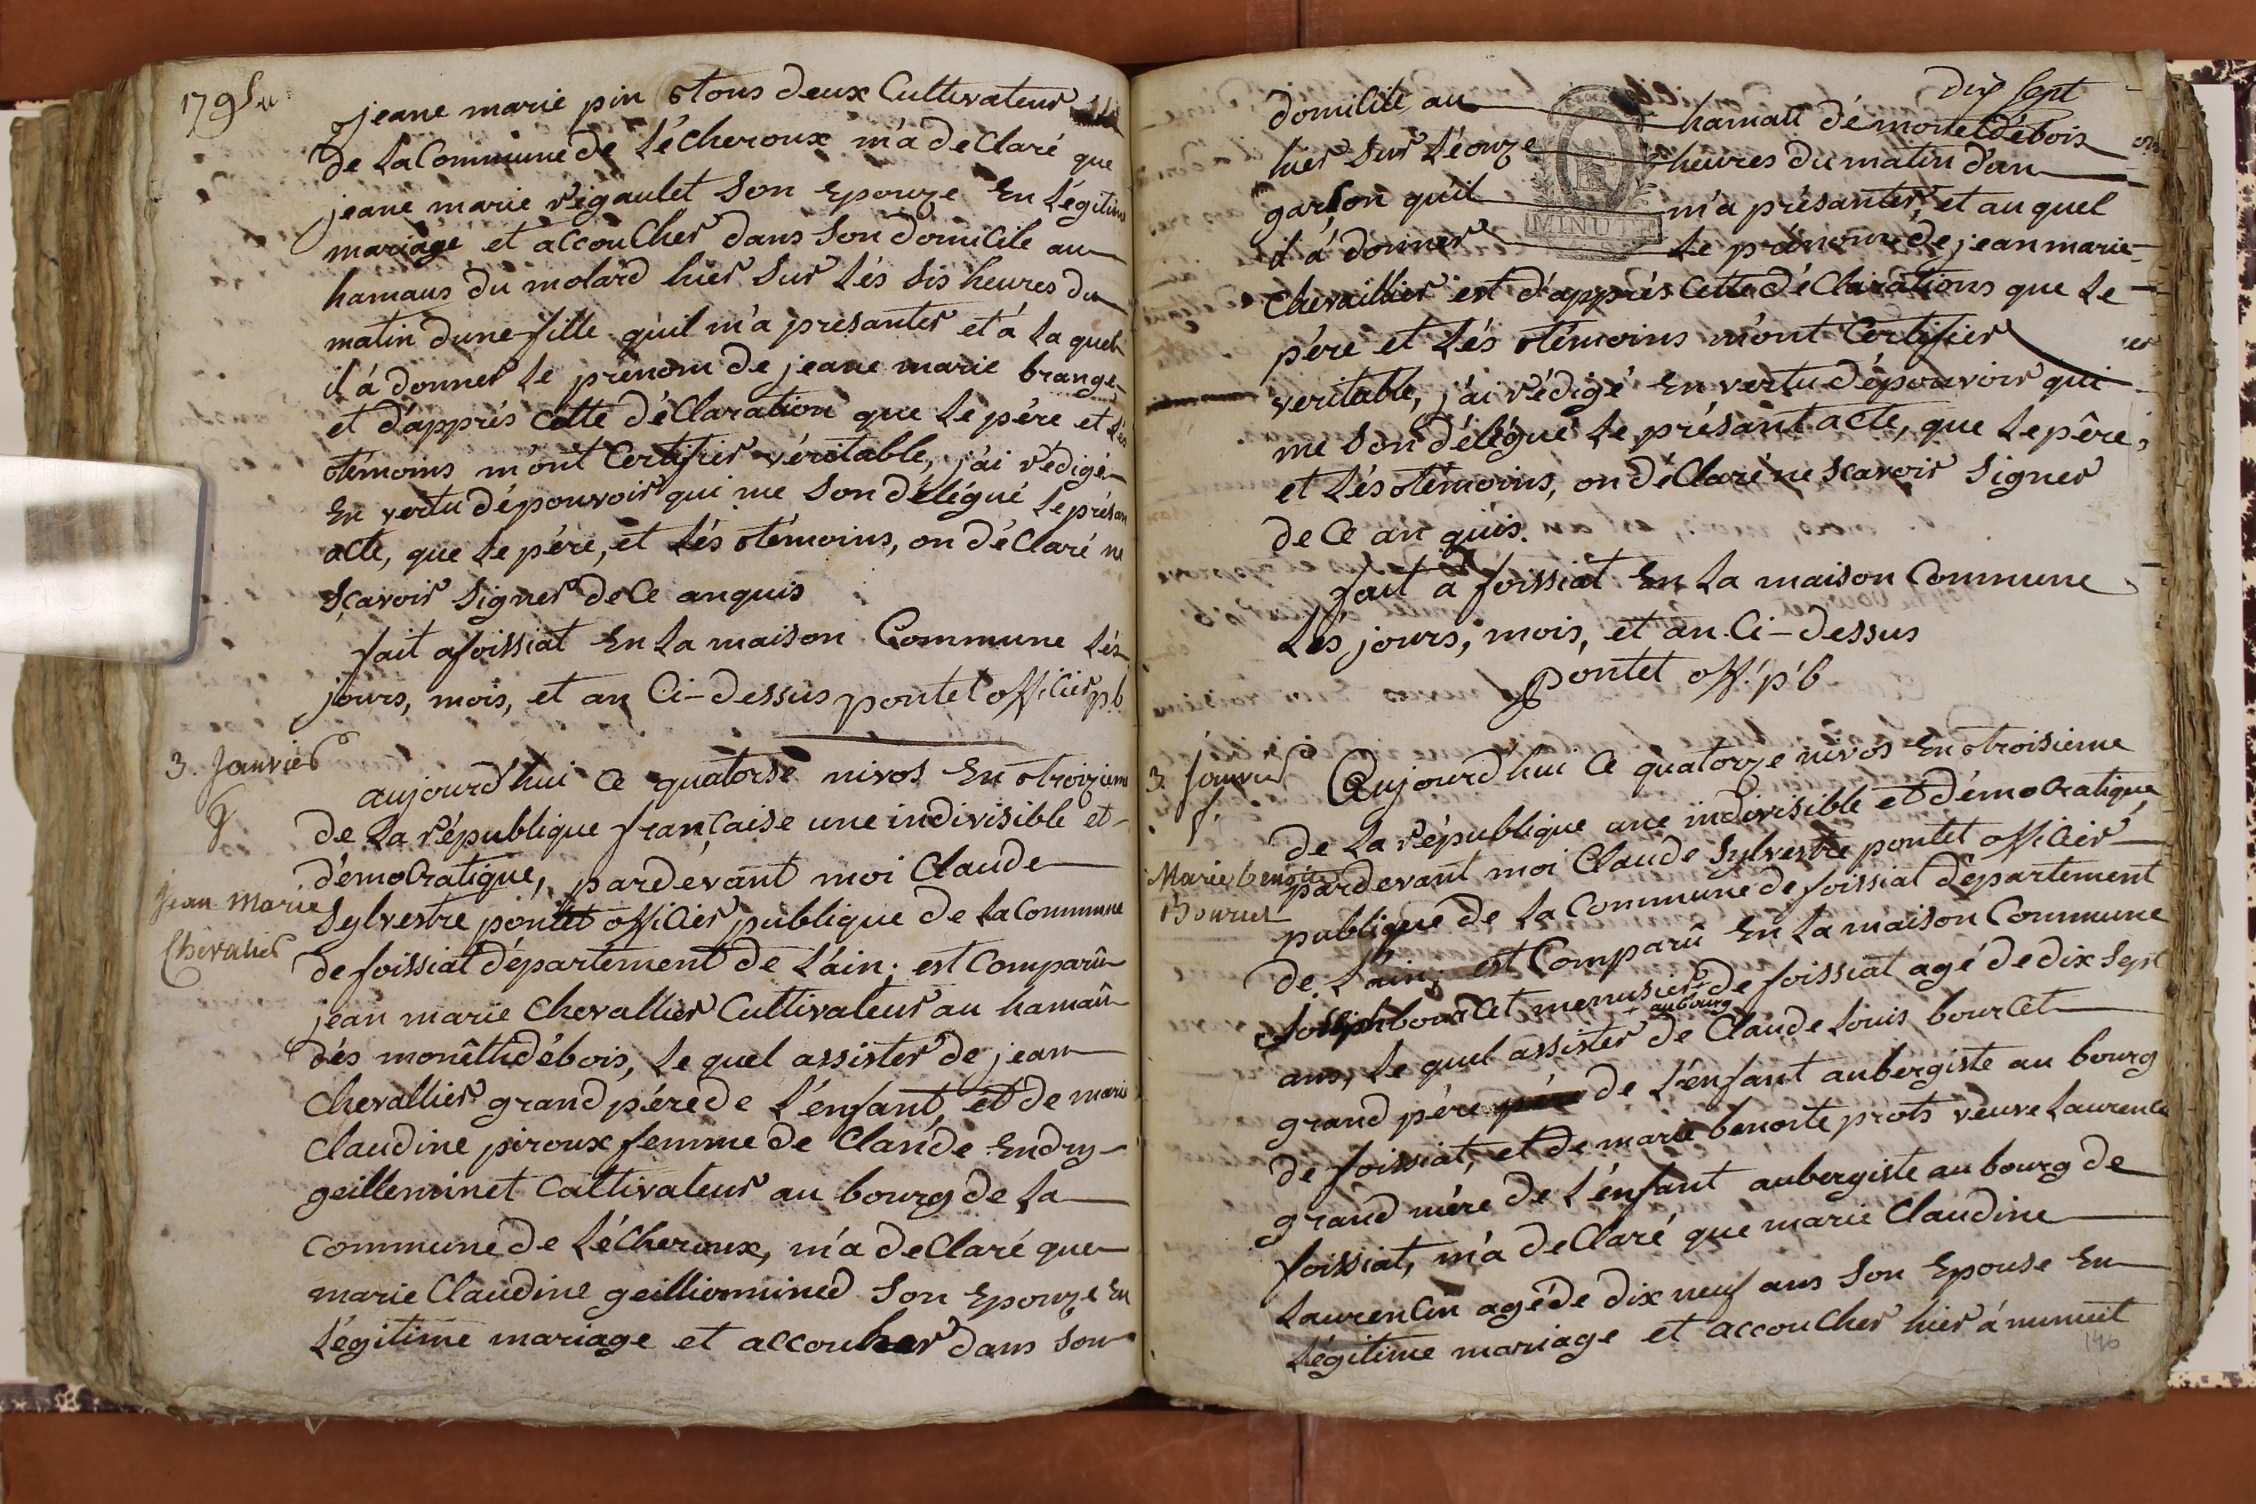 1795
jeane marie pin tous deux Cultivateur
de La Commune de Lécheroux m'a de Claré que
jeane marie rigaulet Son Epouze En Légitime
mariage et accouCher dans Son domicile au
hamaus du molard hier Sur Lés sis heures du
matin dune fille qu'il m'a présanter et á La quel
il á donner Le prenom de jeane marie brange
et d'apprés Cette déClaration que Le pére et Lés
témoins m'ont Certifier véritable, j'ai rédigé
En vertu dépouvoir qui me Son délégué Le présan
acte, que Le pére, et Lés témoins, on déClaré ne
Sçavoir Signer de Ce anquis
fait a foissiat En La maison Commune Lés
jours, mois, et an Ci-dessus pontet officier p.b
3. Janvier
g
Jean Marie
Chevalier
aujourd'hui Ce quatorse nivos En troizieme
de La république française une indivisible et
démoCratique, pardévant moi Claude
Sylvestre pontet officier publique de La Commune
de foissiat département de L'ain; est Comparû
jean marie Chevallier Cultivateur au hamaû
dés monêttdébois, Le quel assister de jean
Chevallier grand pére de L'énfant, et de marie
Claudine piroux femme de Claude Endry
geilleminet Cultivateur au bourg de La
Commune de LéCheroux, m'a deClaré que
marie Claudine geilliermined Son Epouze En
Légitime mariage et accouher dans Son
dix sept
domicile au hamau démonetdébois
hier Sur Léonze heures du matin d'un
garson qu'il m'a présanter, et au quel
il á donner Le prénom de jean marie
MINUTE
Chevaillier est d'apprés Cette déClarations que Le
pére et Lés témoins m'ont Certifier
veritable, j'ai rédigé En vertu dépouvoir qui
me Son délégué Le présant acte, que Le pêre,
et Lés témoins, on déClaré ne Scavoir Signer
de Ce an quis.
fait a foissiat En La maison Commune
Lés jours, mois, et an Ci-dessus
pontet off. p'b
3. Janvier
f.
Marie benoite
Bourcet
Aujourd'hui Ce quatorze nivos En troisieme
de La république une indivisible et démoCratique
pardevant moi Claude Sylvestre pontet officier
publique de La Commune de foissiat département
de L'ain; est Comparû En La maison Commune
Joseph bourcet menusier de foissiat agé de dix Sept
au bourg
ans, Le quel assister de Claude Louis bourcet
grand pére de L'enfant aubergiste au bourg
de foissiat, et de marie benoite prots veuve Laurencin
grand mére de L'énfant aubergiste au bourg de
foissiat, m'a deClaré que marie Claudine
Laurencin agéde dix neuf ans Son Epouse En
Légitime mariage et accouCher hier á minuit
146